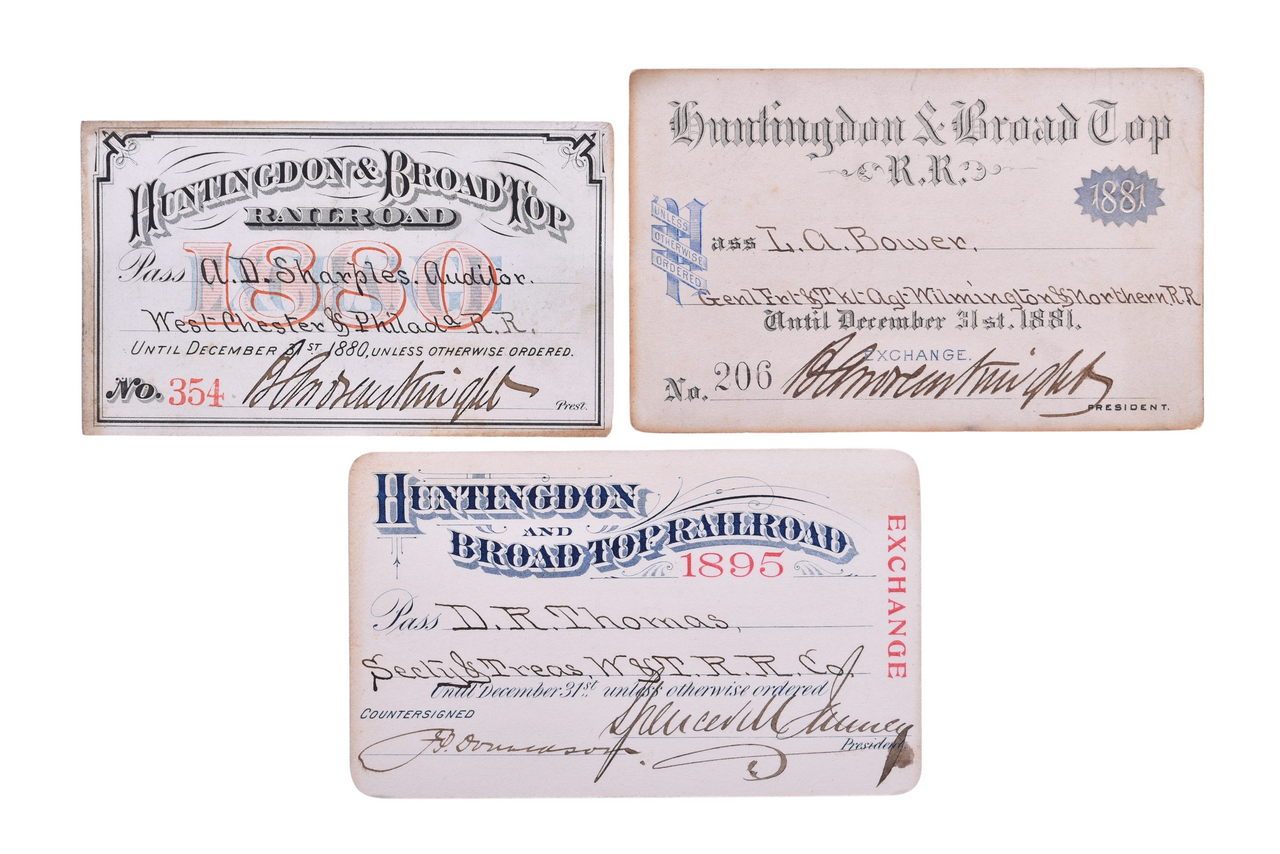 HUNTINGDON & BROAD TOP
RAILROAD
1880
Pass A. D. Sharples. Auditor.
West Chester & Philada R. R.
UNTIL DECEMBER 31ST 1880, UNLESS OTHERWISE ORDERED.
No. 354
Prest.
Huntingdon & Broad Top
R.R.
1881
UNLESS
OTHERWISE
ORDERED
Pass L. A. Bower,
Genl Frt & Tkt Agt Wilmington & Northern R R
Until December 31st. 1881.
EXCHANGE.
No. 206
PRESIDENT.
HUNTINGDON
AND
BROAD TOP RAILROAD
1895
EXCHANGE
Pass D. R. Thomas,
Secty & Treas, W & T. R. R. Co.
Until December 31st unless otherwise ordered
COUNTERSIGNED
President